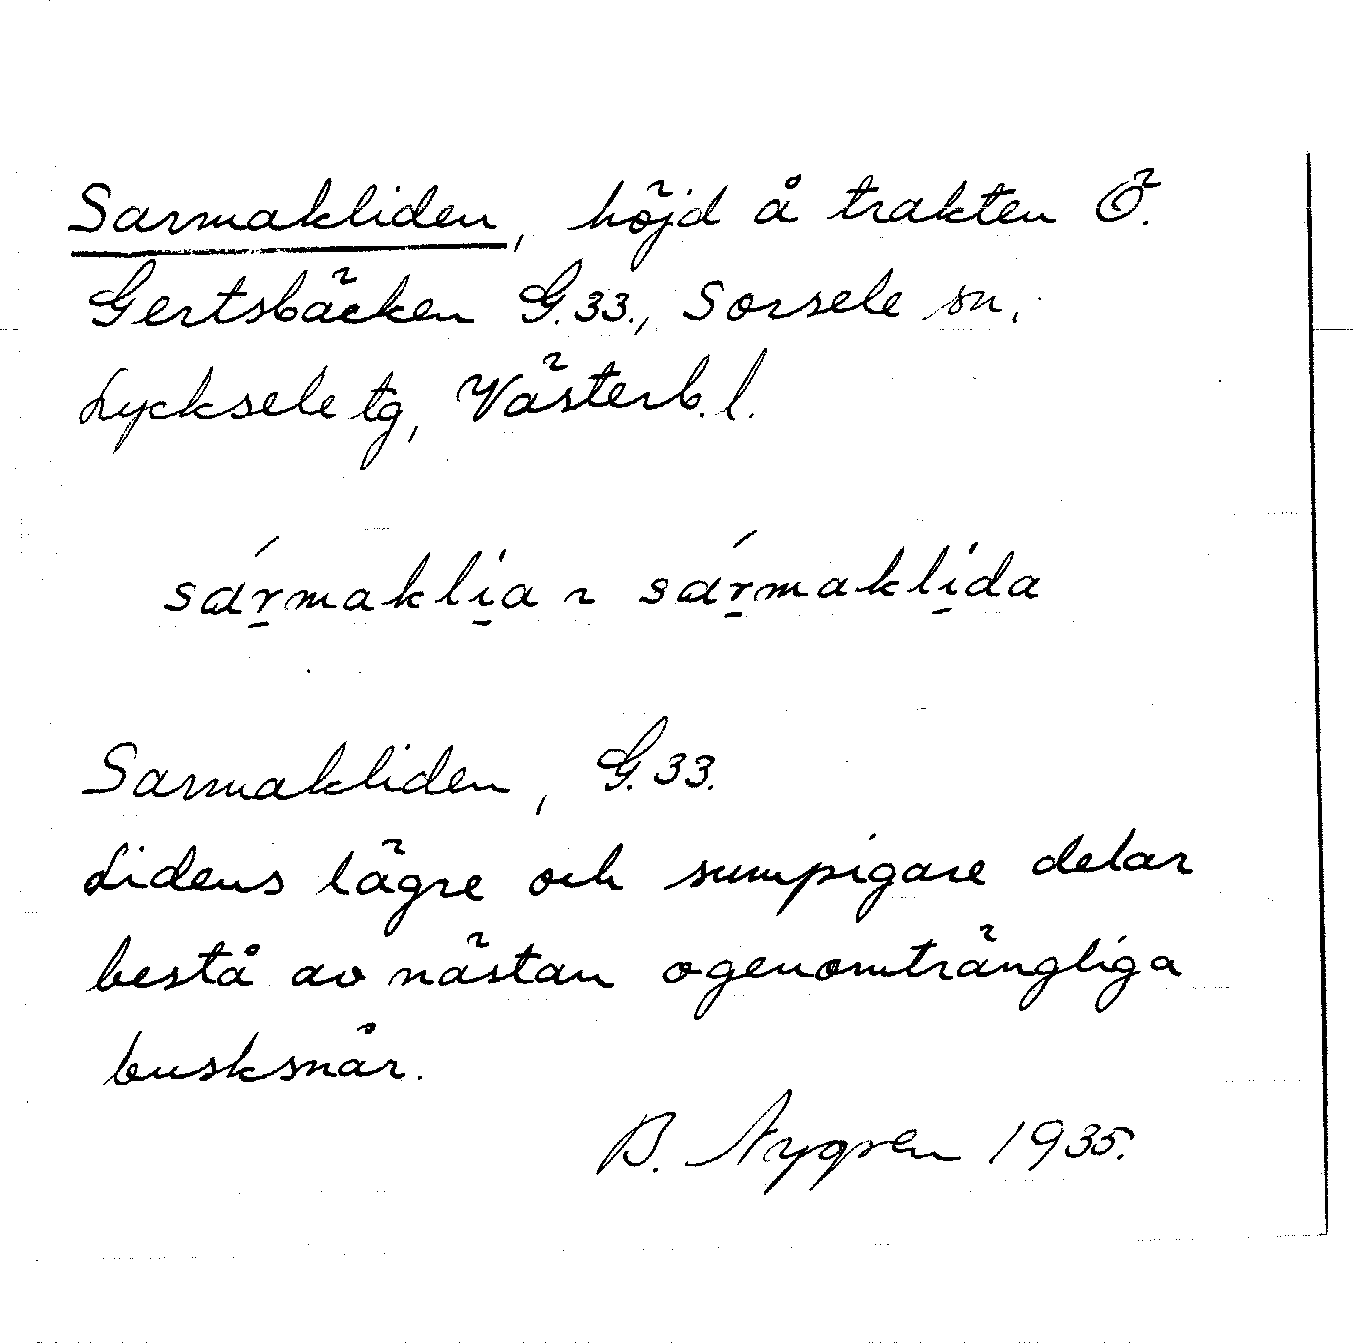 Sarmakliden, höjd å trakten Ö.
Gertsbäcken G.33., Sorsele sn.
Lycksele tg, Västerb. l.
sármaklia ~ sármaklida
Sarmakliden, G.33.
Lidens lägre och sumpigare delar
bestå av nästan ogenomträngliga
busksnår.
B. Nygren 1935.